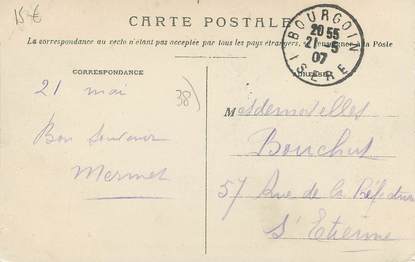 15 €
CARTE POSTALE
La correspondance au recto n'étant pas acceptée par tous les pays étrangers, à la Poste
BOURGOIN
20 55
21 - 5
07
ISÈRE
CORRESPONDANCE
ADRESSE
21 mai
38)
Bon Souvenir
Mermet
Mesdemoiselles
Bouchut
57 Rue de la
St Etienne